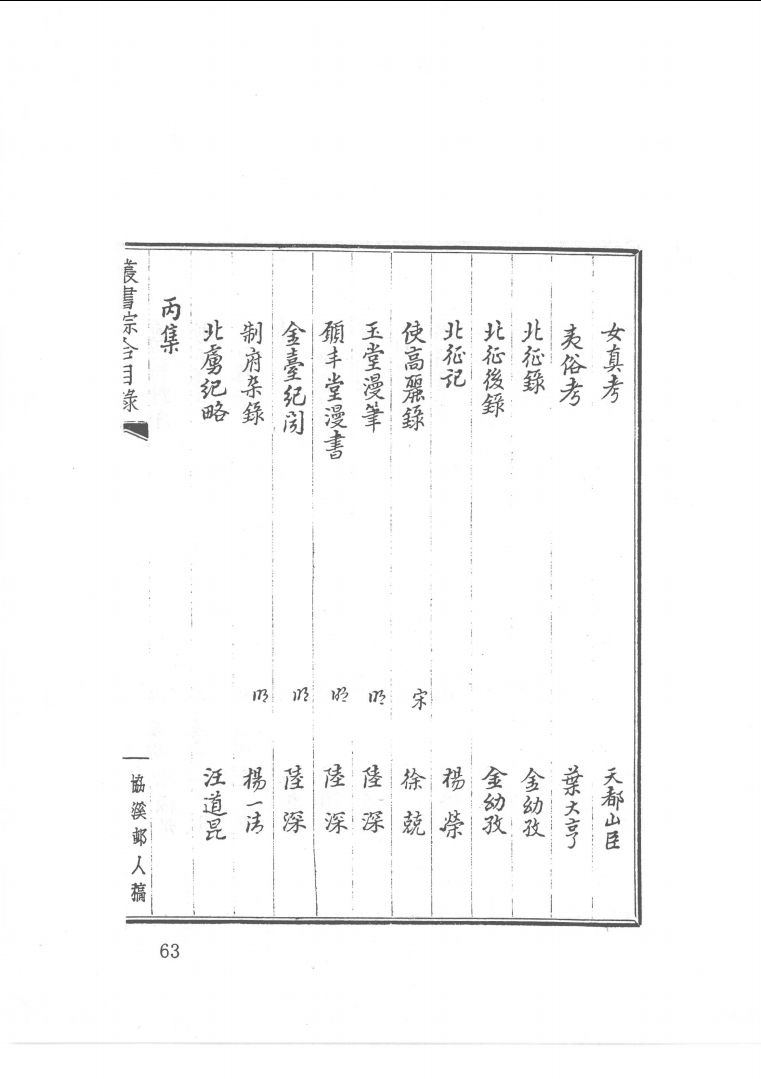 女真考 天都山臣
夷俗考 葉大亨
北征錄 金幼孜
北征後錄 金幼孜
北征記 楊榮
使高麗錄 宋 徐兢
玉堂漫筆 明 陸深
願丰堂漫書 明 陸深
金臺紀闻 明 陸深
制府杂錄 明 楊一清
北虜紀略 汪道昆
丙集
叢書综合目錄
協溪邨人稿
63